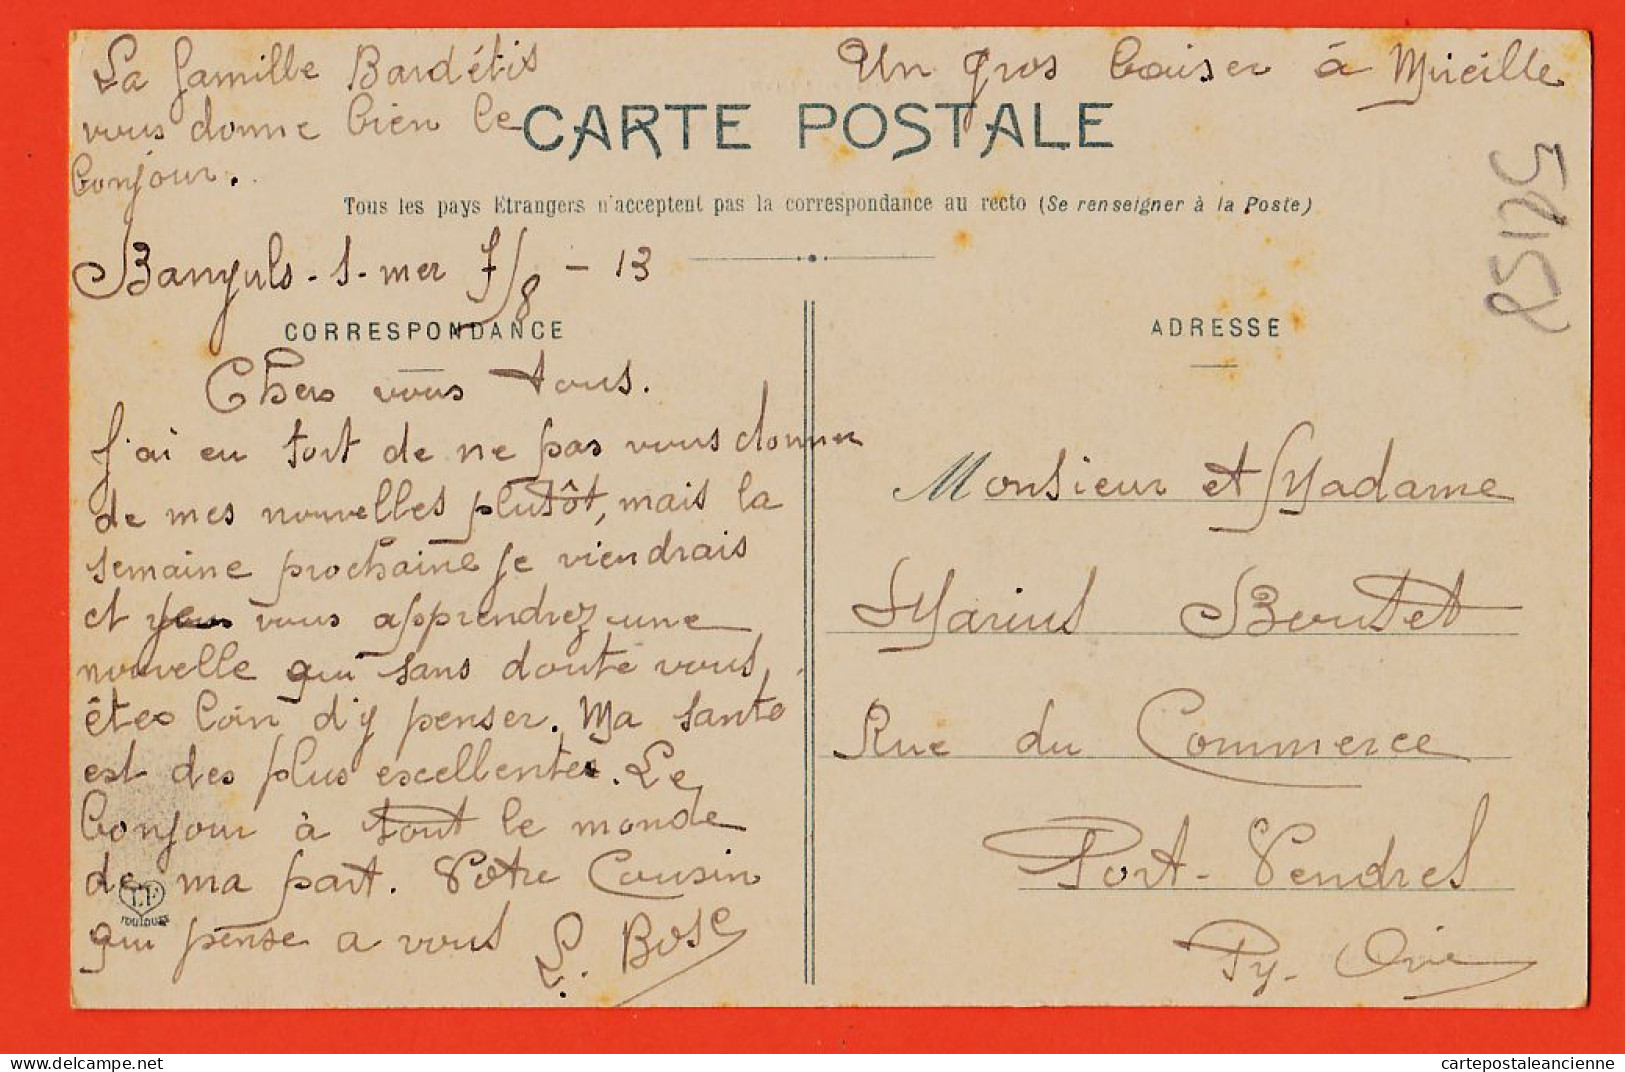 La famille Bardétis
vous donne bien le
bonjour.
Un gros baiser à Mireille
CARTE POSTALE
Tous les pays Etrangers n'acceptent pas la correspondance au recto (Se renseigner à la Poste)
Banyuls-s-mer 7/8 - 13
CORRESPONDANCE
Chers vous tous.
J'ai eu tort de ne pas vous donner
de mes nouvelles plutôt, mais la
semaine prochaine je viendrais
et vous apprendrez une
nouvelle qui sans doute vous
êtes loin d'y penser. Ma santé
est des plus excellentes. Le
bonjour à tout le monde
de ma part. Votre Cousin
qui pense a vous
L. Bosc
LF
TOULOUSE
ADRESSE
Monsieur et Madame
Marius Boutet
Rue du Commerce
Port-Vendres
Py. Orie
cartepostaleancienne